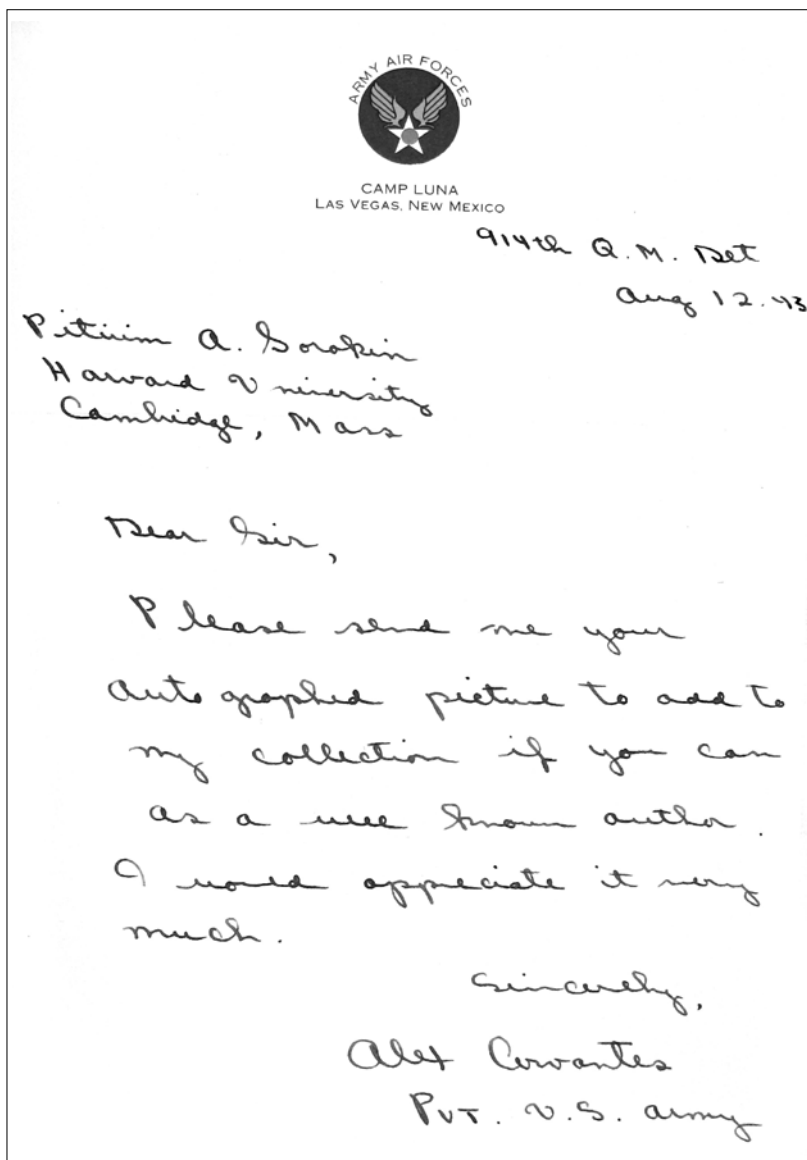 ARMY AIR FORCES
CAMP LUNA
LAS VEGAS, NEW MEXICO
914th Q.M. Det
Aug 12.43
Pitirim A. Sorokin
Harvard University
Cambridge, Mass
Dear Sir,
Please send me your
autographed picture to add to
my collection if you can
as a well known author.
I would appreciate it very
much.
Sincerely,
Alex Cervantes
Pvt. U.S. Army